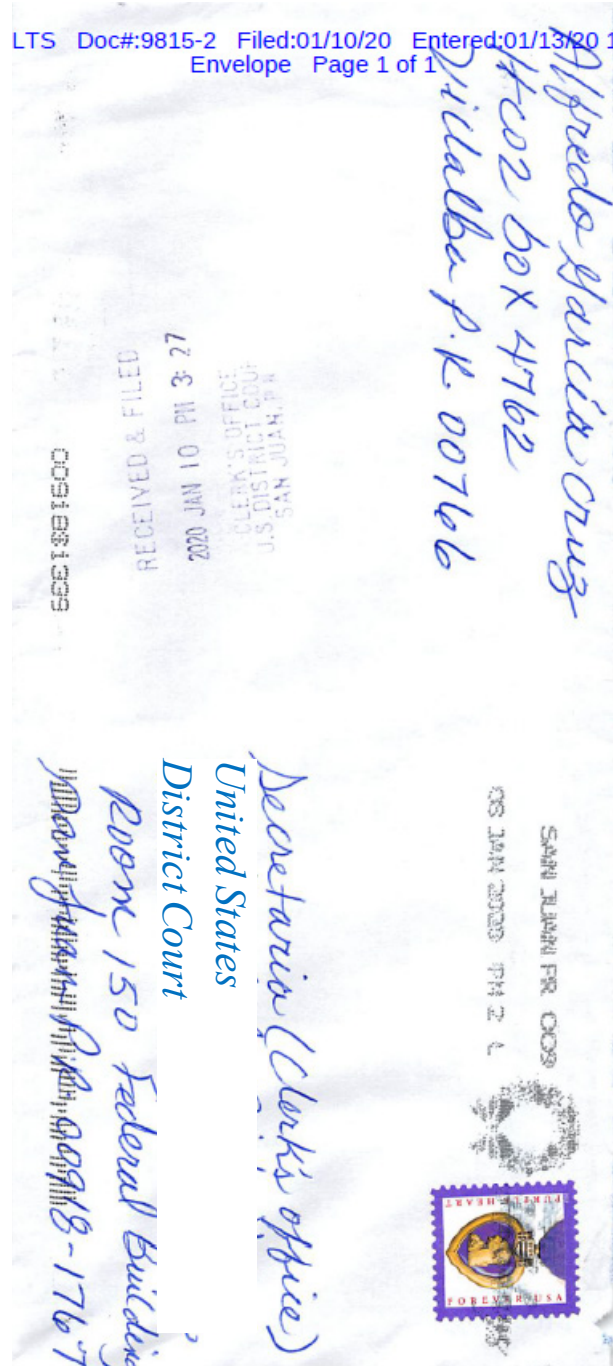 LTS Doc#:9815-2 Filed:01/10/20 Entered:01/13/20 1
Envelope Page 1 of 1
Alfredo García Cruz
HC02 box 4762
Villalba P.R 00766
RECEIVED & FILED
2020 JAN 10 PM 3:27
CLERK'S OFFICE
U.S. DISTRICT COUR
SAN JUAN, P R
SAN JUAN PR 009
08 JAN 2020 PM 2 L
PURPLE HEART
FOREVER USA
Secretaria (Clerk's office)
United States
District Court
Room 150 Federal Building
San Juan P.R. 00918-1767